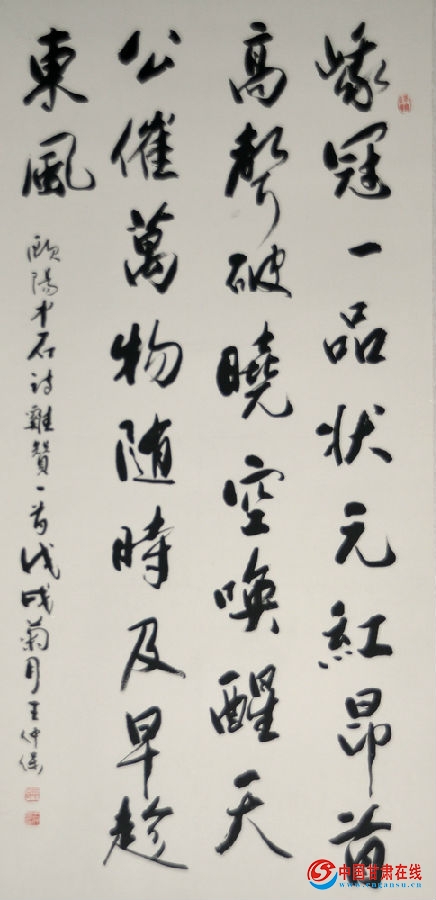 峨冠一品状元紅昂首
高聲破曉空喚醒天
公催萬物随時及早趁
東風
欧陽中石诗雞贊一首戊戌菊月王仲保
中国甘肃在线
www.cngansu.cn